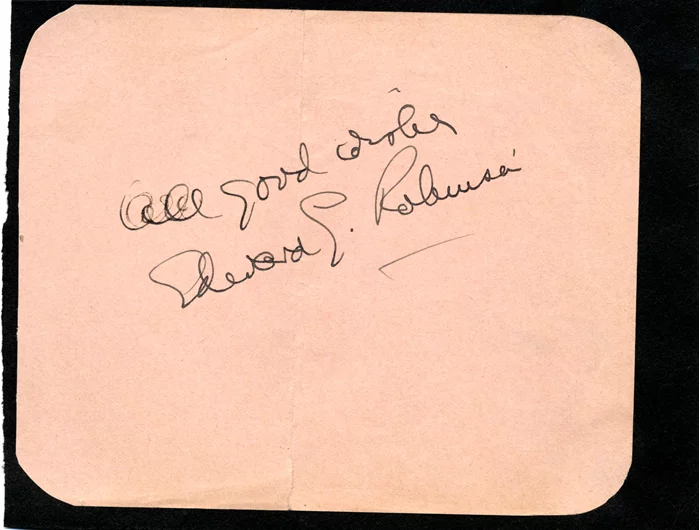 All good wishes
Edward G. Robinson